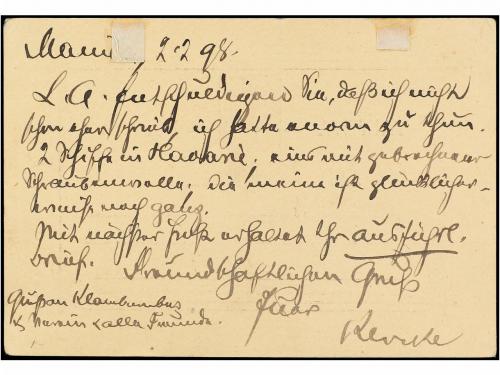 2.2.98.
L. A. Entschuldigen Sie, daß ich nicht
schon eher schrieb ich hatte enorm zu thun.
2 Schiffe in Havarie. eins mit gebrochener
Schraubenwelle. die meine ist glücklicher-
noch ganz.
Mit nächster Post erhaltet Ihr ausführl.
Brief. Freundschaftlichen Gruß
Euer
Gruß an
Verein & alle Freunde.